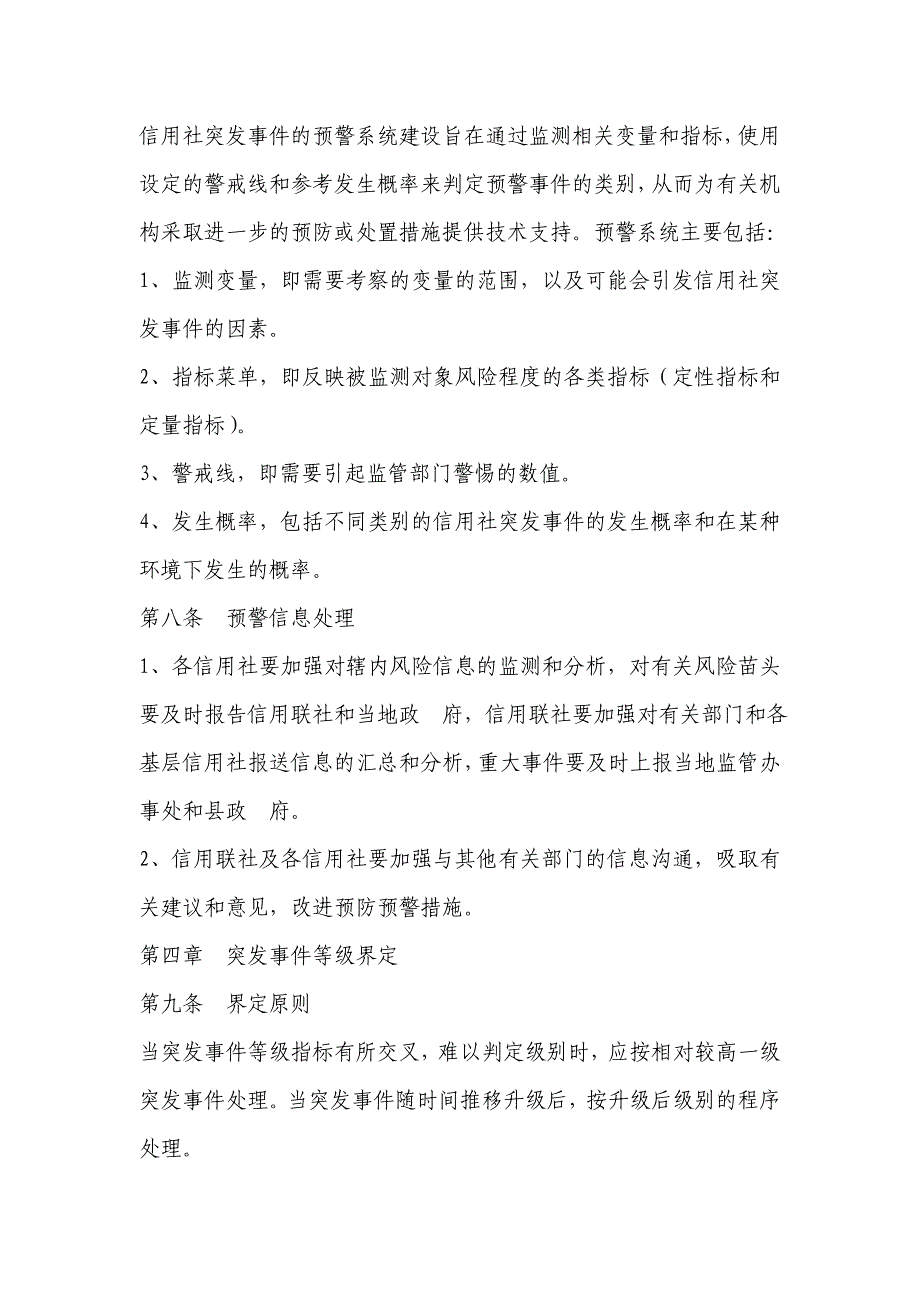 信用社突发事件的预警系统建设旨在通过监测相关变量和指标，使用
设定的警戒线和参考发生概率来判定预警事件的类别，从而为有关机
构采取进一步的预防或处置措施提供技术支持。预警系统主要包括：
1、监测变量，即需要考察的变量的范围，以及可能会引发信用社突
发事件的因素。
2、指标菜单，即反映被监测对象风险程度的各类指标（定性指标和
定量指标）。
3、警戒线，即需要引起监管部门警惕的数值。
4、发生概率，包括不同类别的信用社突发事件的发生概率和在某种
环境下发生的概率。
第八条　预警信息处理
1、各信用社要加强对辖内风险信息的监测和分析，对有关风险苗头
要及时报告信用联社和当地政　府，信用联社要加强对有关部门和各
基层信用社报送信息的汇总和分析，重大事件要及时上报当地监管办
事处和县政　府。
2、信用联社及各信用社要加强与其他有关部门的信息沟通，吸取有
关建议和意见，改进预防预警措施。
第四章　突发事件等级界定
第九条　界定原则
当突发事件等级指标有所交叉，难以判定级别时，应按相对较高一级
突发事件处理。当突发事件随时间推移升级后，按升级后级别的程序
处理。